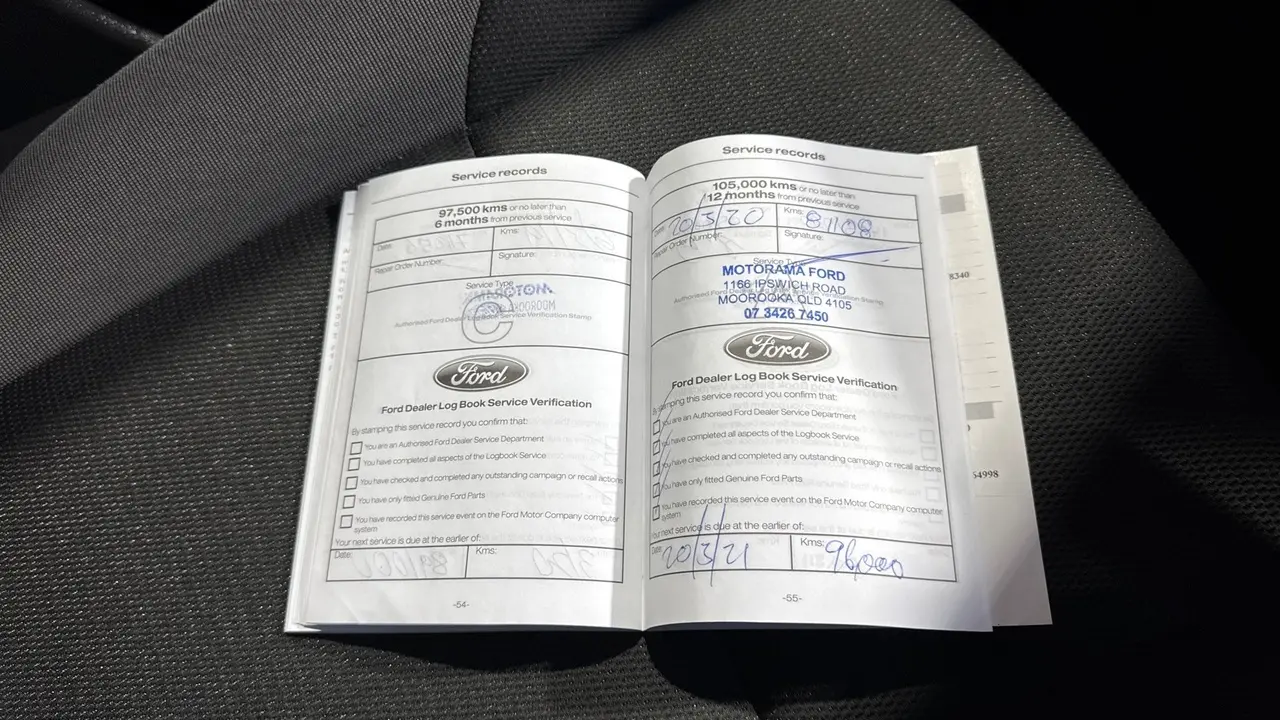 Service records
97,500 kms or no later than
6 months from previous service
Date:
Kms:
Repair Order Number:
Signature:
Service Type
Authorised Ford Dealer Log Book Service Verification Stamp
Ford
Ford Dealer Log Book Service Verification
By stamping this service record you confirm that:
You are an Authorised Ford Dealer Service Department
You have completed all aspects of the Logbook Service
You have checked and completed any outstanding campaign or recall actions
You have only fitted Genuine Ford Parts
You have recorded this service event on the Ford Motor Company computer
system
Your next service is due at the earlier of:
Date:
Kms:
-54-
Service records
105,000 kms or no later than
12 months from previous service
Date: 20/3/20
Kms: 81108
Repair Order Number:
Signature:
Service Type
MOTORAMA FORD
1166 IPSWICH ROAD
Authorised Ford Dealer Log Book Service Verification Stamp
MOOROOKA QLD 4105
07 3426 7450
Ford
Ford Dealer Log Book Service Verification
By stamping this service record you confirm that:
You are an Authorised Ford Dealer Service Department
You have completed all aspects of the Logbook Service
You have checked and completed any outstanding campaign or recall actions
You have only fitted Genuine Ford Parts
You have recorded this service event on the Ford Motor Company computer
system
Your next service is due at the earlier of:
Date: 20/3/21
Kms: 96,000
-55-
8340
54998